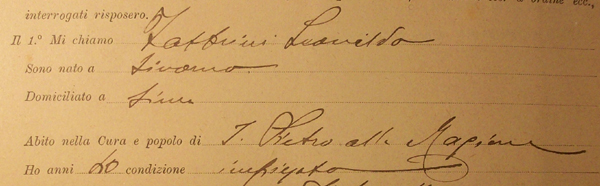 ordine ecc.,
interrogati risposero.
Il 1.° Mi chiamo
Sono nato a Livorno.
Domiciliato a Siena
Abito nella Cura e popolo di S. Pietro alla Magione
Ho anni 40 condizione impiegato